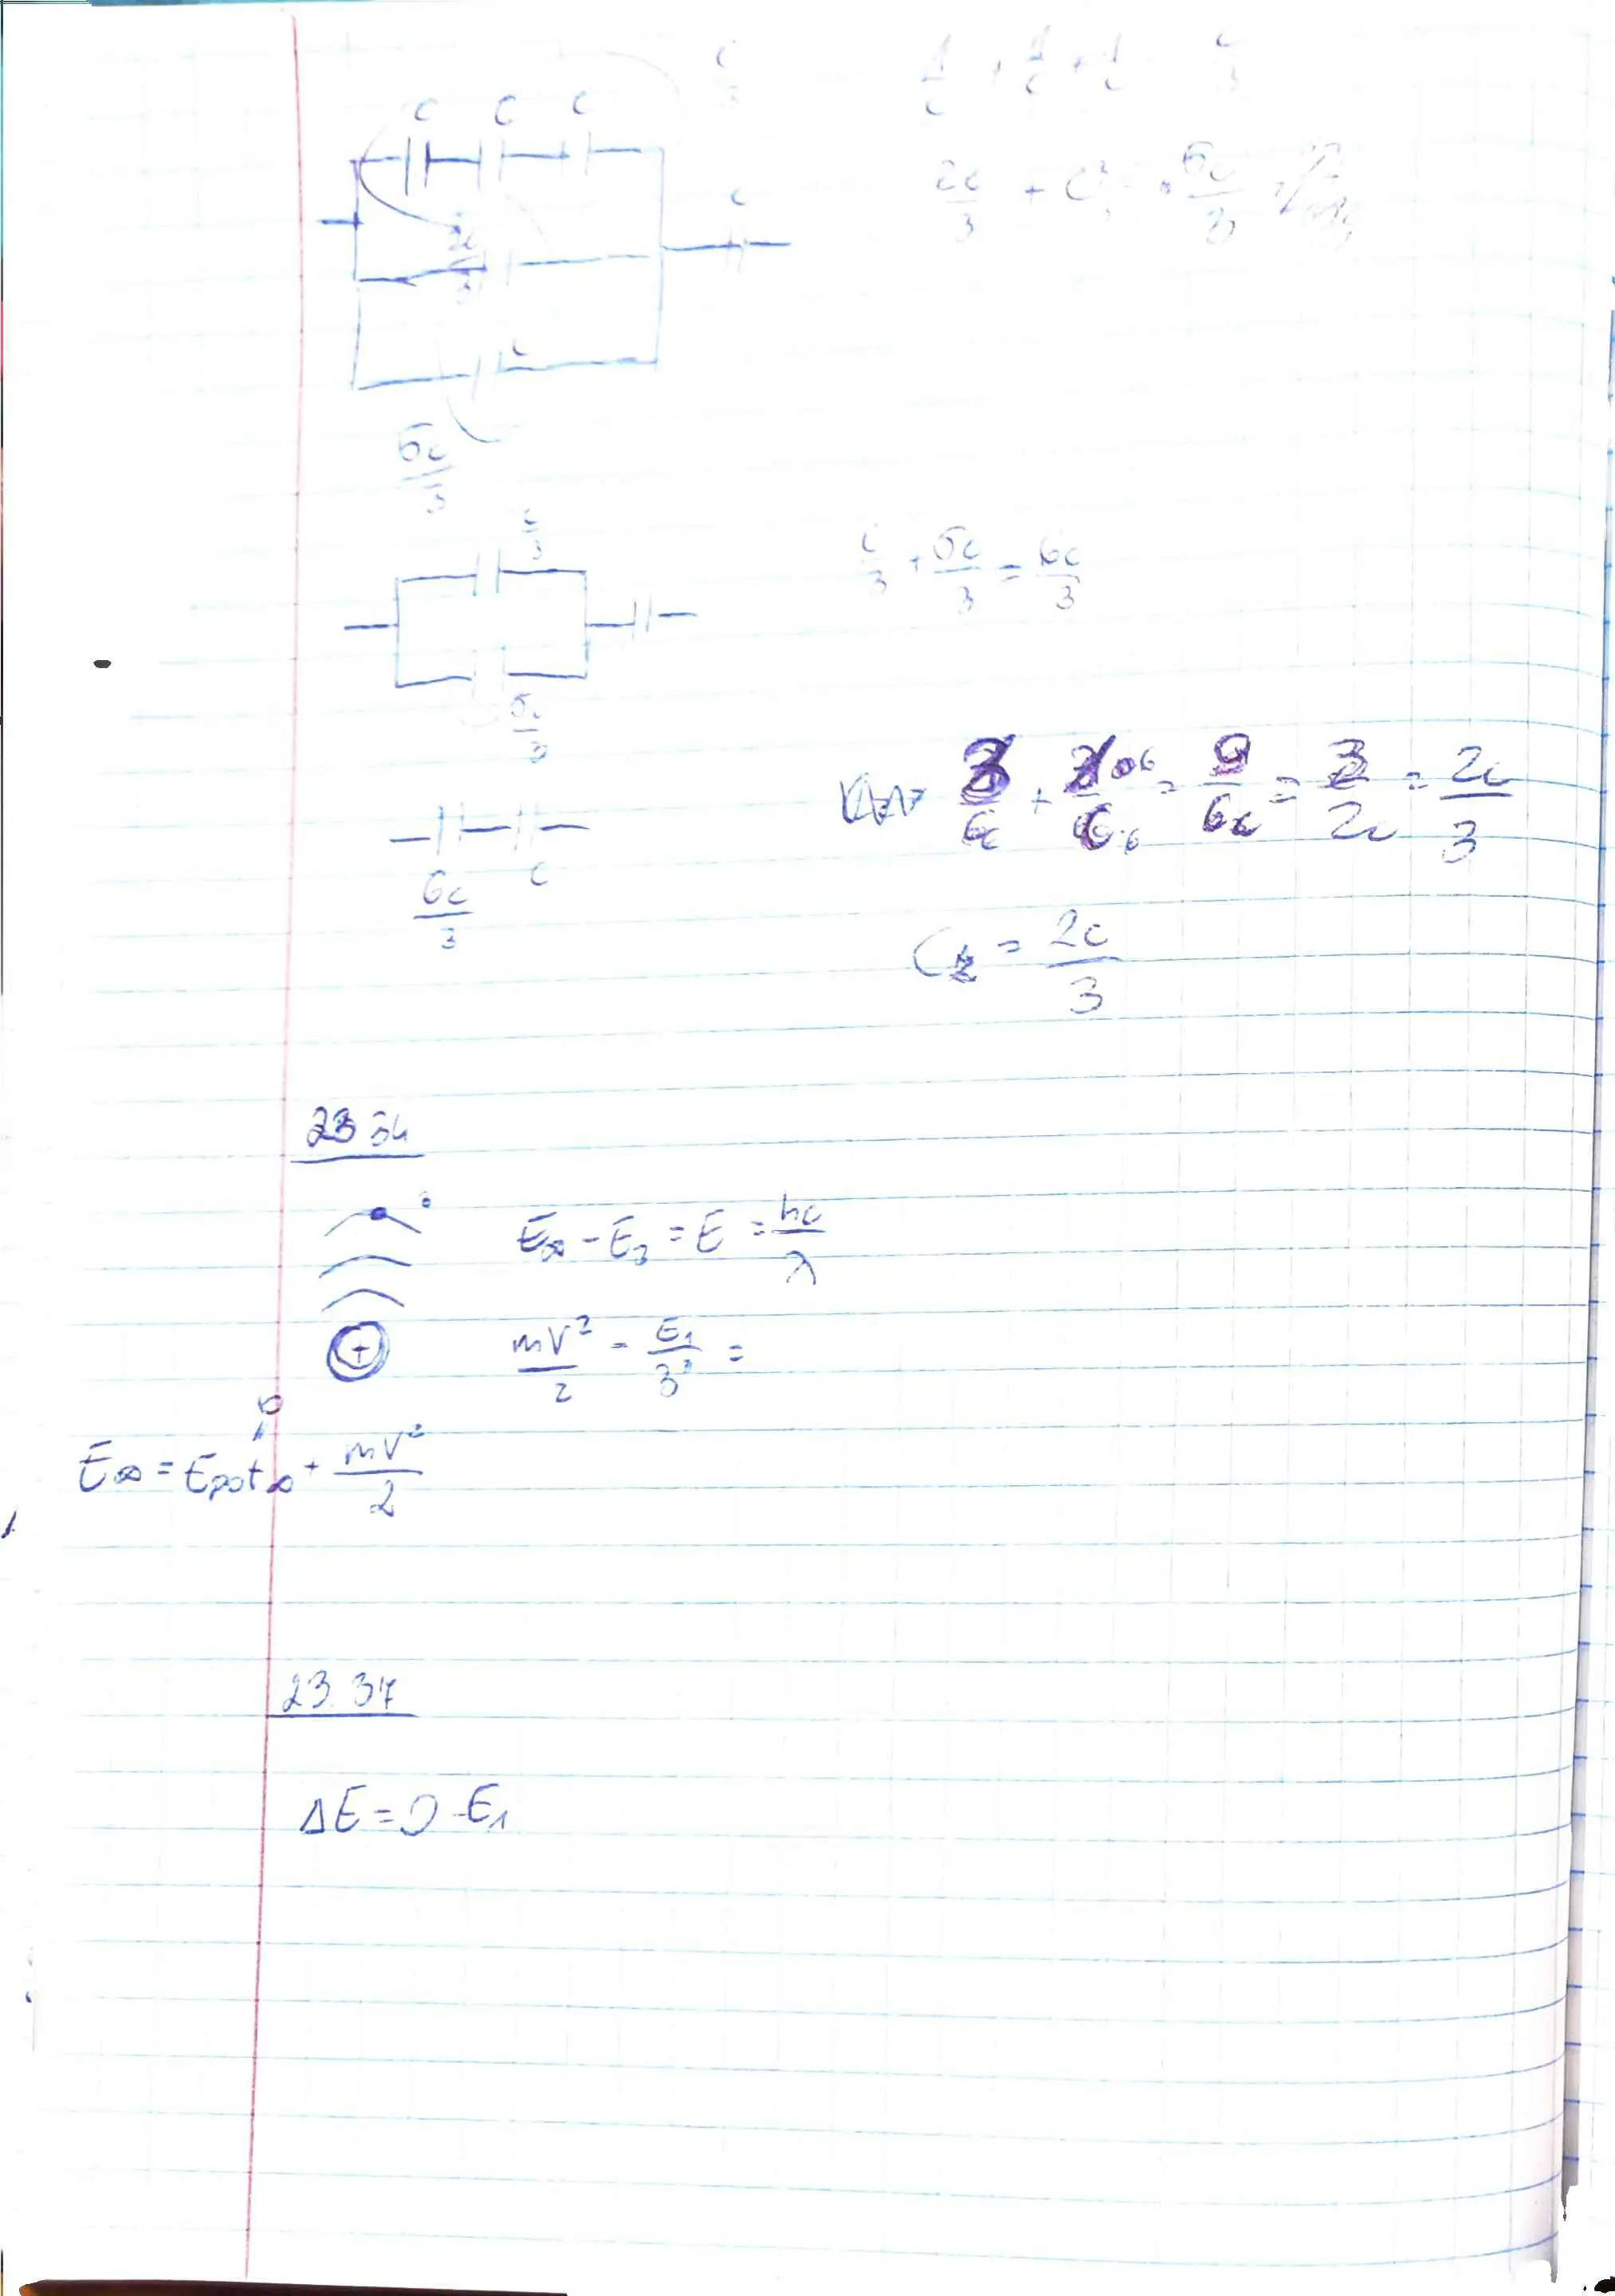 C C C
2c/3 + C = 5c/3
2c/3
C
5c/3
c/3
c/3 + 5c/3 = 6c/3
5c/3
3/6c + 6/6 = 9/6c = 3/2c = 2c/3
6c/3 C
Cz = 2c/3
23 34
E∞ - E3 = E = hc/λ
mv²/2 - E1/3² =
+
0
E∞ = Epot∞ + mv²/2
23.37
ΔE = 0 - E1